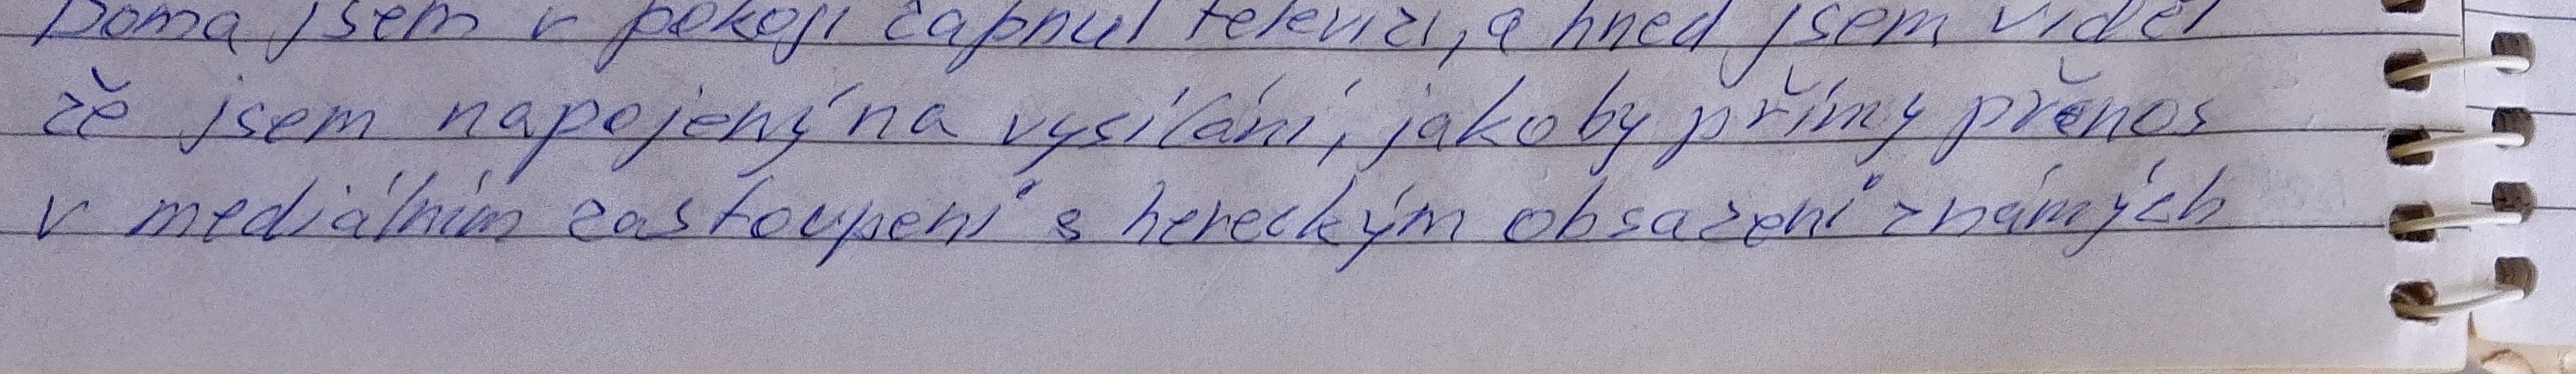 Doma jsem v pokoji zapnul televizi, a hned jsem viděl
že jsem napojený na vysílání, jakoby přímy přenos
v mediálním zastoupení s hereckým obsazení známých